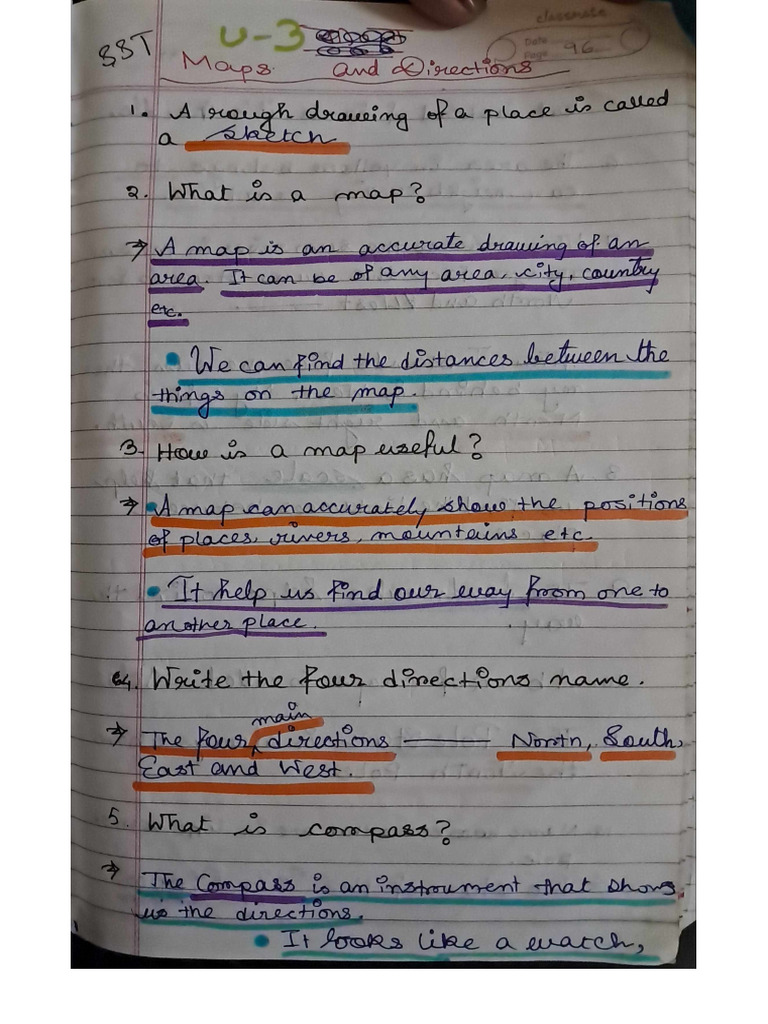 SST
U-3
classmate
Date
Page 96
Maps and Directions
1. A rough drawing of a place is called
a sketch
2. What is a map?
→ A map is an accurate drawing of an
area. It can be of any area, city, country
etc.
• We can find the distances between the
things on the map.
3. How is a map useful?
→ • A map can accurately show the positions
of places, rivers, mountains etc.
• It help us find our way from one to
another place.
4. Write the four directions name.
main
→ The four directions —— North, South,
East and West.
5. What is compass?
→ The Compass is an instrument that shows
us the directions.
• It looks like a watch,